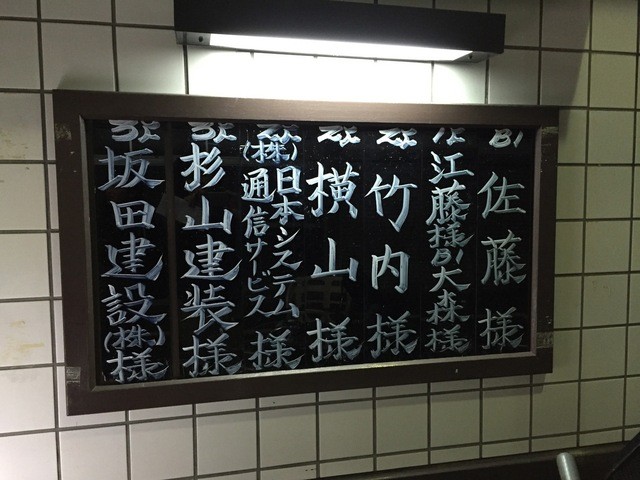 B1 佐藤様
1F 江藤様 B1 大森様
2F 竹内様
2F 横山様
2F (株)日本システム
通信サービス様
3F 杉山建装様
3F 坂田建設(株)様